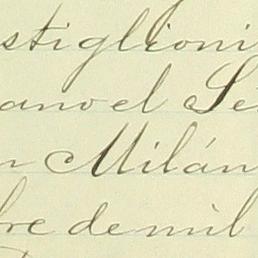 stiglioni
anoel Sé
n Milán
bre de mil